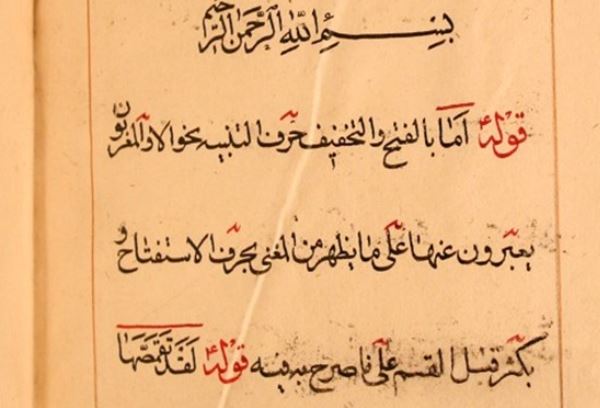 بسم الله الرحمن الرحيم
قوله اما بالفتح والتخفيف حرف التنبيه نحو الا والمعربون
يعبرون عنها على ما يظهر من المغني بحرف الاستفتاح و
يكثر قبل القسم على ما صرح به فيه قوله لقد تقمصها